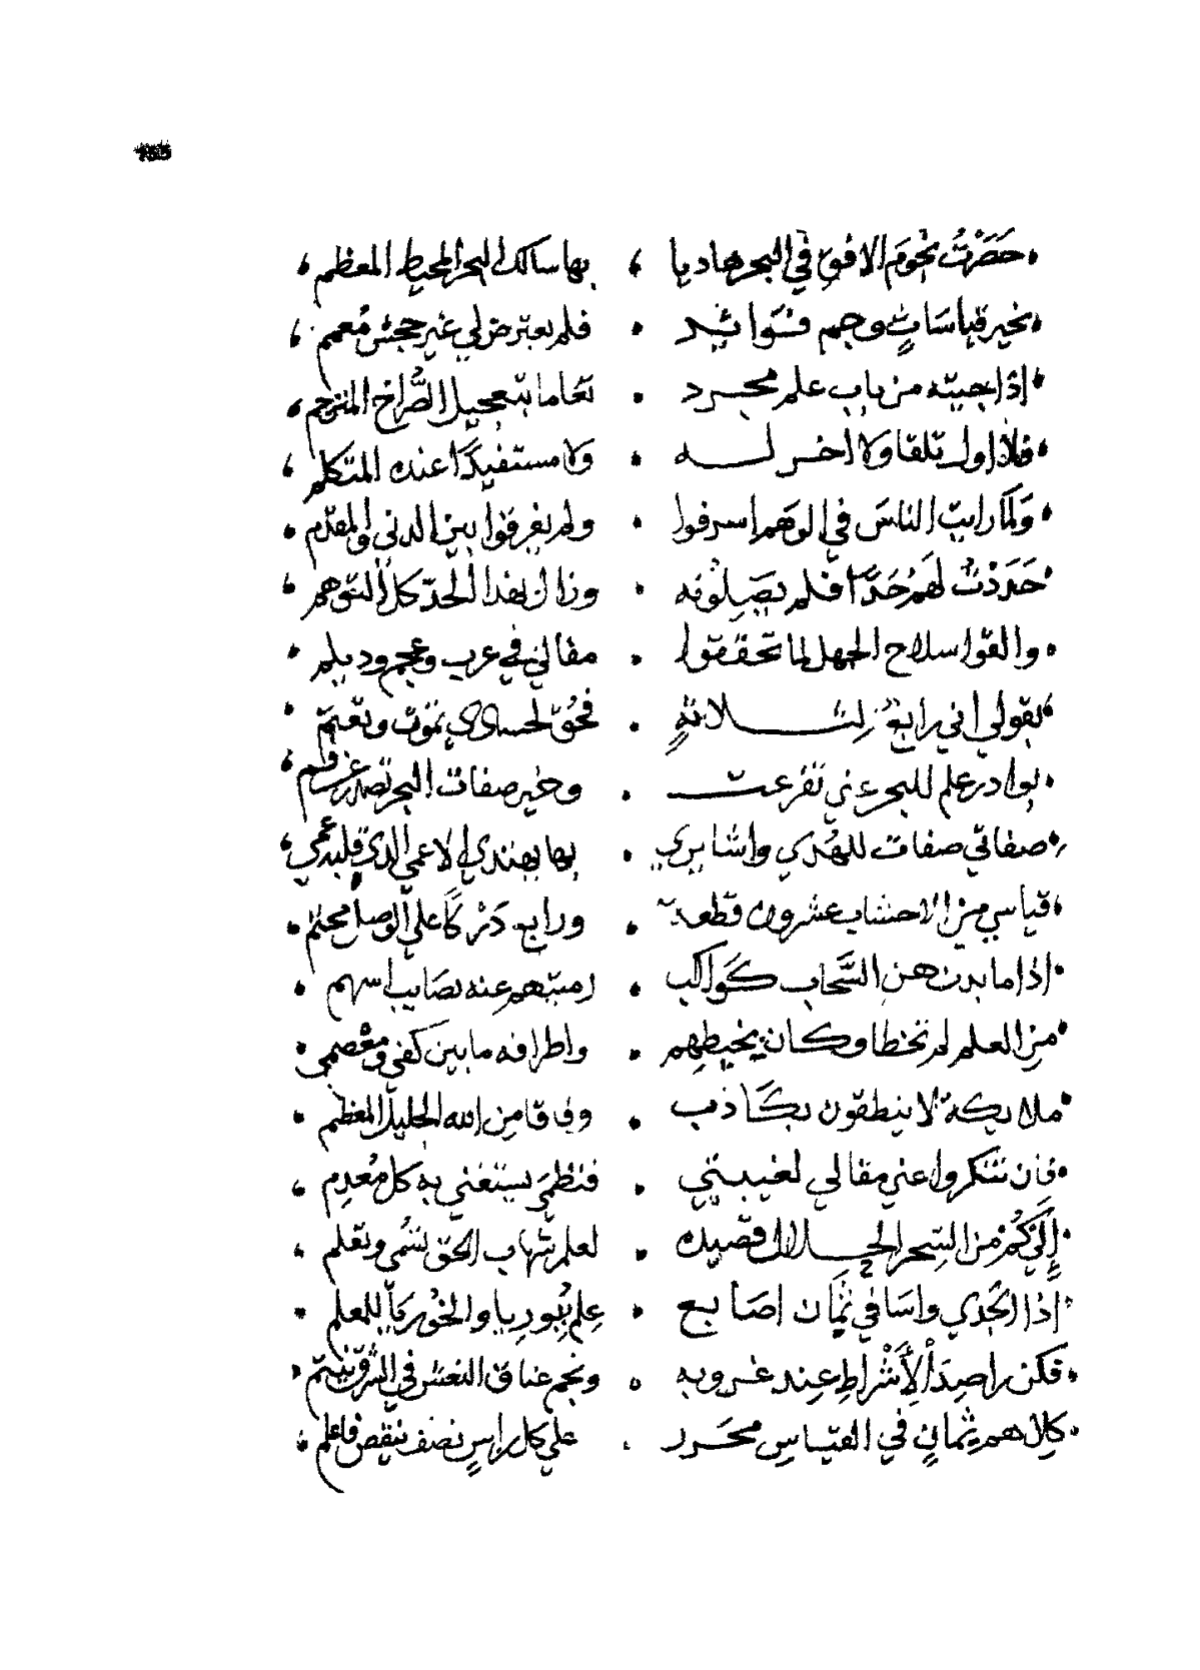 155
حَصَرْتُ نجُومَ الافق في البحر هاديا ، بها سالك البحر المحيط المعظم ،
بخير قياسَاتٍ وجم فوائد . فلم يعترض لي غير جحش مُعمم ،
إذا جيته من باب علم مجرد . تعاما بتعجيل الصُّراخ المترجم .
فلا اول تلقا ولا اخر له . ولا مستفيدًا عند المتكلم ،
وَلما رايت الناسَ في الوهم اسرفوا . ولم يفرقوا بين الدني والمقدم .
حَدَدْتُ لَهم حَدًّا فلم يصِلونه . وزال بهذا الحدّ كل التوهم .
والقوا سلاح الجهل لما تحققوا . مقالي في عرب وعجم وديلم .
بقولي اني رابعٌ لثلاثةٍ . فحُقّ لحسادي تموت وتعتم
بوادر علم للبحر عني تفرعت . وخير صفات البحر تصدر عن فم ،
صفاتي صفات للهُدي واشايري . بها يهتدي الاعمي الذي قلبه عمي ،
قياسي من الاحشاب عشرون قطعة . ورابع دَرْكًا علي الوصل محتم .
اذا ما بدت من السَّحاب كَواكب . رمتهم عنه بصَايب اسهم .
من العلم لم تخطا وكان يحيطهم . واطرافه ما بين كفي ومعْصمي .
ملايكة لا ينطقون بكَاذب . وفاقا من الله الجليل المعظم .
فان تنكروا عني مقالي لغيبتي . فنظمي يستغني به كل مُعدِم ،
إلَيْكُمْ من السِحر الحلال قصيدة . لعلم شهاب الحق تنمي وتعلم ،
اذا الجَدي واسَا في ثمَان اصَابع . عِلم بُبورِيا والخوريَا للمعلم .
فكن راصِدَ الأَشْراطِ عِند غروبه . ونجم عناق النعش في الشرق يتم .
كلاهم ثمانٍ في القياسِ محَرر . علي كل راسٍ نصف نقيص فاعلم .